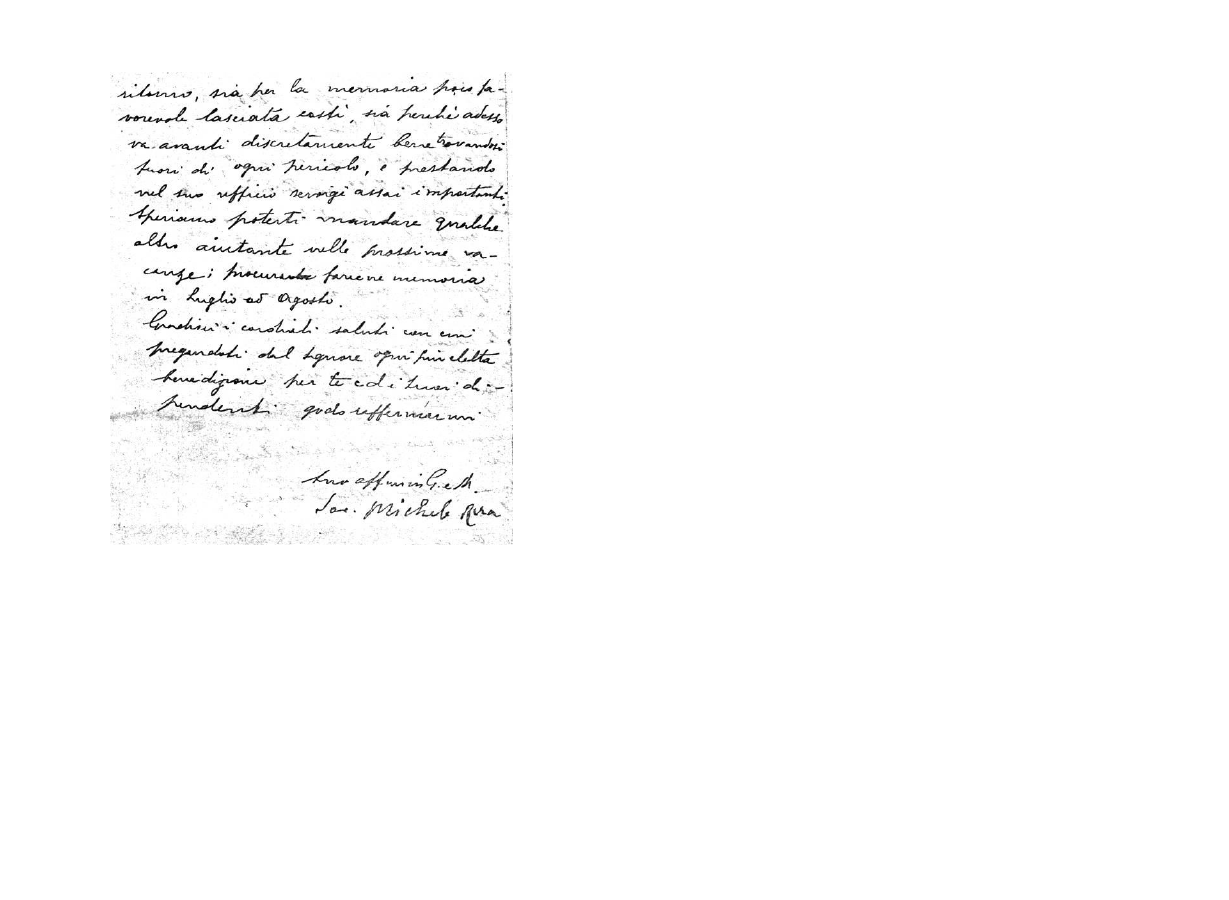 ritorno, sia per la memoria poco fa-
vorevole lasciata costì, sia perchè adesso
va avanti discretamente bene trovandosi
fuori di ogni pericolo, e prestando
nel suo ufficio servigi assai importanti.
Speriamo poterti mandare qualche
altro aiutante nelle prossime va-
canze; farcene memoria
in Luglio od Agosto.
Gradisci i cordiali saluti con cui
pregandoti dal Signore ogni più eletta
benedizione per te ed i tuoi di-
pendenti godo raffermarmi
tuo affmo in G. e M.
Sac. Michele Rua